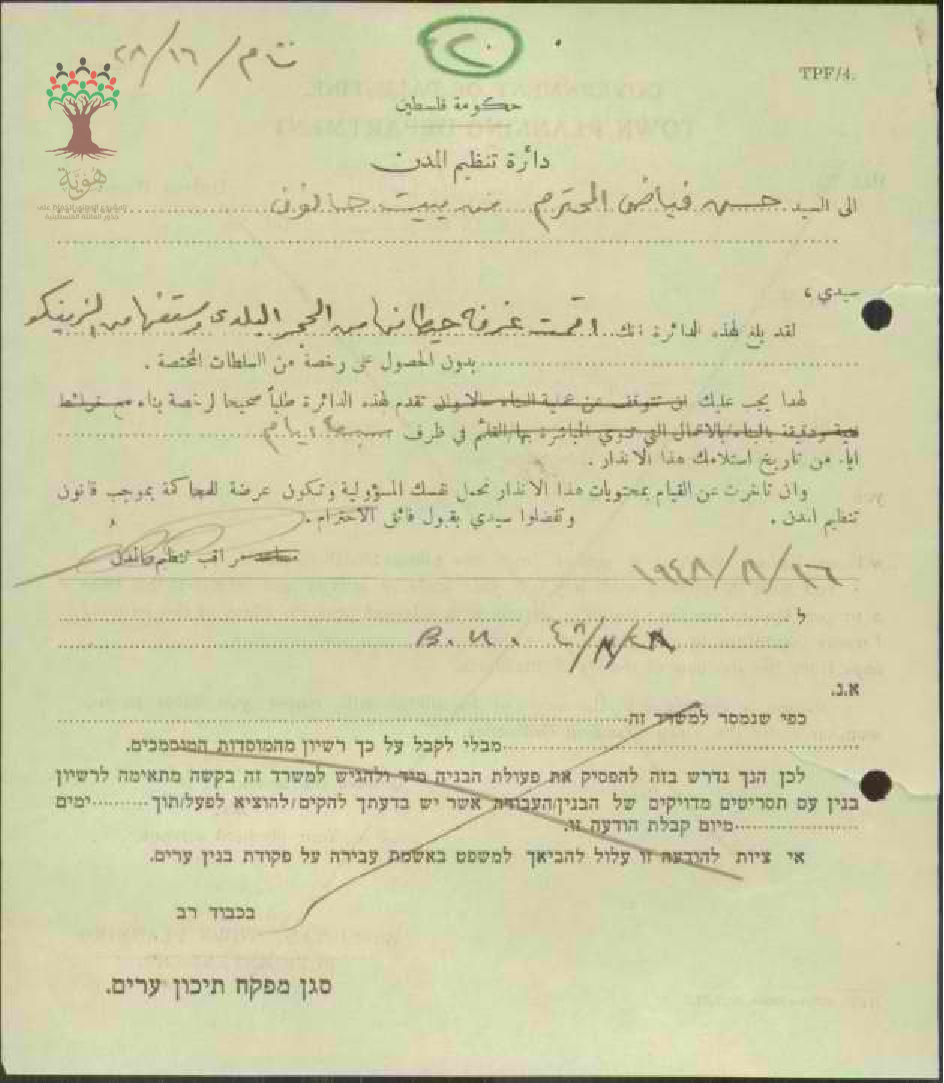 ت م / ١٦ / ٢٨
٢٠
TPF/4.
حكومة فلسطين
دائرة تنظيم المدن
هوية
الى السيد حسن فياض المحترم من بيت
سيدي ،
لقد بلغ لهذه الدائرة انك اقمت غرفة حيطانها من الحجر البلدي وسقفها من الزينكو
بدون الحصول على رخصة من السلطات المختصة .
لهذا يجب عليك ان تتوقف عن عملية البناء حالا وان تقدم لهذه الدائرة طلباً صحيحا لرخصة بناء مع خرائط
فنية ودقيقة بالبناء/بالاعمال التي تنوي المباشرة بها/القائم في ظرف سبعة ايام
ايام من تاريخ استلامك هذا الانذار .
وان تأخرت عن القيام بمحتويات هذا الانذار تحمل نفسك المسؤولية وتكون عرضة للمحاكمة بموجب قانون
تنظيم المدن . وتفضلوا سيدي بقبول فائق الاحترام .
مساعد مراقب تنظيم المدن
ل
B.U.
א.נ.
כפי שנמסר למשרד זה
מבלי לקבל על כך רשיון מהמוסדות המוסמכים.
לכן הנך נדרש בזה להפסיק את פעולת הבניה מיד ולהגיש למשרד זה בקשה מתאימה לרשיון
בנין עם תסריטים מדויקים של הבנין/העבודה אשר יש בדעתך להקים/להוציא לפעל/תוך ימים
מיום קבלת הודעה זו.
אי ציות להודעה זו עלול להביאך למשפט באשמת עבירה על פקודת בנין ערים.
בכבוד רב
סגן מפקח תיכון ערים.